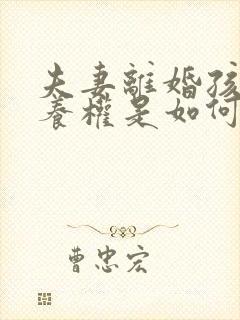 夫妻離婚孩
養權是如何
曹忠宏